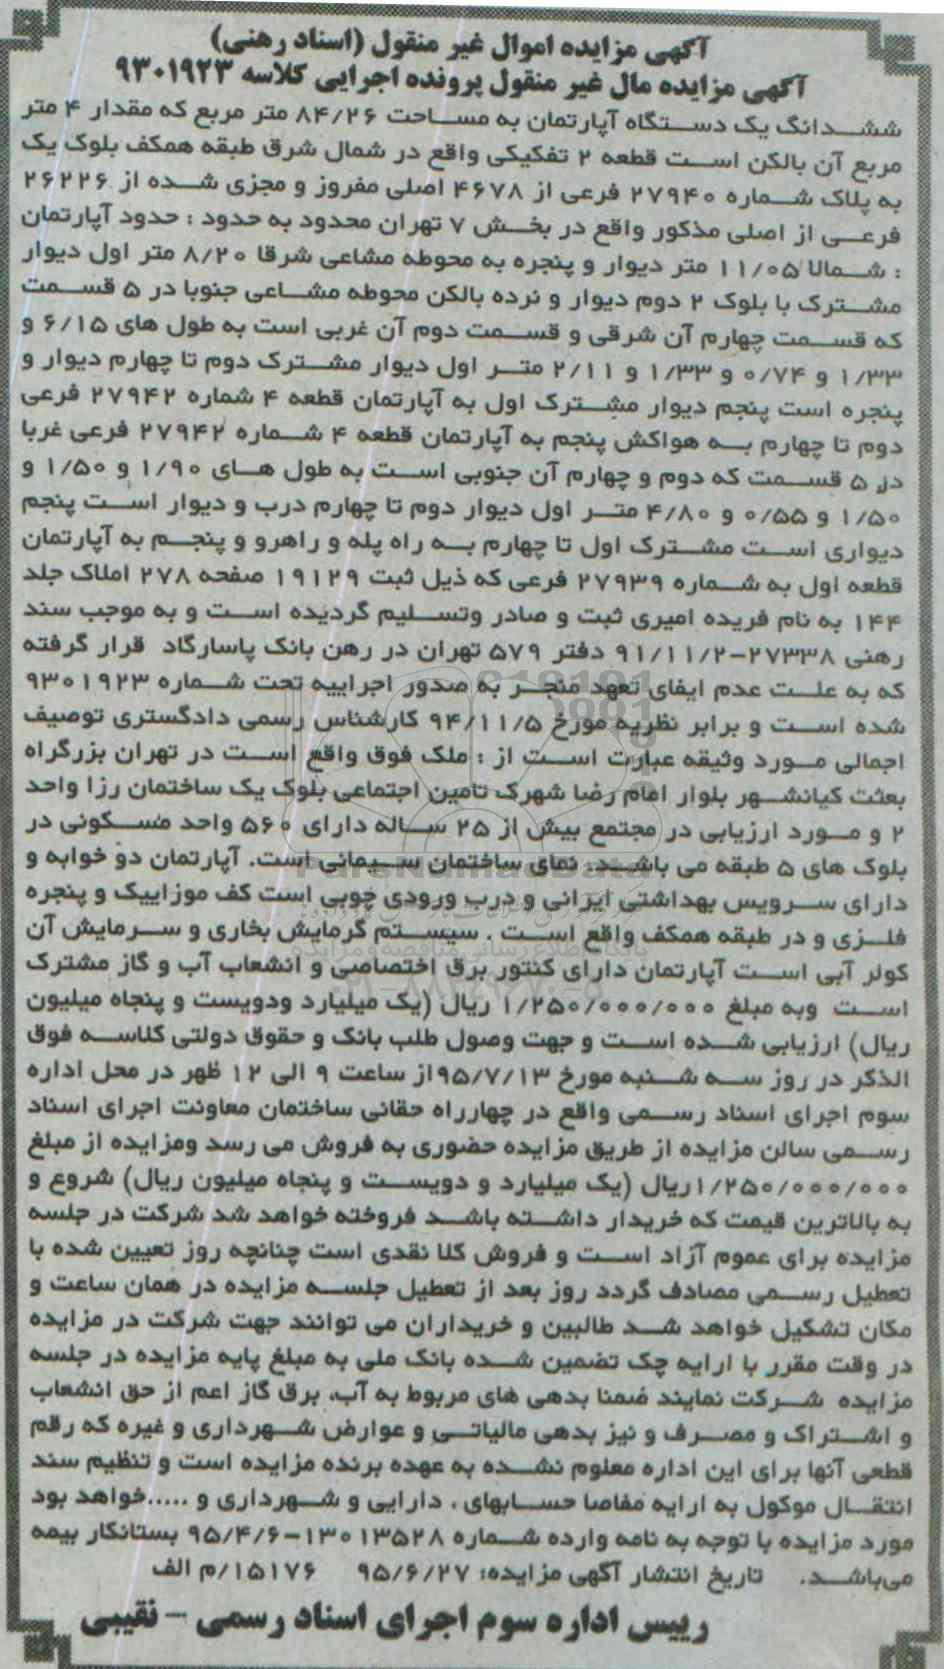 آگهی مزایده اموال غیر منقول (اسناد رهنی)
آگهی مزایده مال غیر منقول پرونده اجرایی کلاسه ۹۳۰۱۹۲۳
ششدانگ یک دستگاه آپارتمان به مساحت ۸۴/۲۶ متر مربع که مقدار ۴ متر
مربع آن بالکن است قطعه ۲ تفکیکی واقع در شمال شرق طبقه همکف بلوک یک
به پلاک شماره ۲۷۹۴۰ فرعی از ۴۶۷۸ اصلی مفروز و مجزی شده از ۲۶۲۲۶
فرعی از اصلی مذکور واقع در بخش ۷ تهران محدود به حدود : حدود آپارتمان
: شمالا ۱۱/۰۵ متر دیوار و پنجره به محوطه مشاعی شرقا ۸/۲۰ متر اول دیوار
مشترک با بلوک ۲ دوم دیوار و نرده بالکن محوطه مشاعی جنوبا در ۵ قسمت
که قسمت چهارم آن شرقی و قسمت دوم آن غربی است به طول های ۶/۱۵ و
۱/۳۳ و ۰/۷۴ و ۱/۳۳ و ۲/۱۱ متر اول دیوار مشترک دوم تا چهارم دیوار و
پنجره است پنجم دیوار مشترک اول به آپارتمان قطعه ۴ شماره ۲۷۹۴۲ فرعی
دوم تا چهارم به هواکش پنجم به آپارتمان قطعه ۴ شماره ۲۷۹۴۲ فرعی غربا
در ۵ قسمت که دوم و چهارم آن جنوبی است به طول های ۱/۹۰ و ۱/۵۰ و
۱/۵۰ و ۰/۵۵ و ۴/۸۰ متر اول دیوار دوم تا چهارم درب و دیوار است پنجم
دیواری است مشترک اول تا چهارم به راه پله و راهرو و پنجم به آپارتمان
قطعه اول به شماره ۲۷۹۳۹ فرعی که ذیل ثبت ۱۹۱۲۹ صفحه ۲۷۸ املاک جلد
۱۴۴ به نام فریده امیری ثبت و صادر وتسلیم گردیده است و به موجب سند
رهنی ۲۷۳۳۸-۹۱/۱۱/۲ دفتر ۵۷۹ تهران در رهن بانک پاسارگاد قرار گرفته
که به علت عدم ایفای تعهد منجر به صدور اجراییه تحت شماره ۹۳۰۱۹۲۳
شده است و برابر نظریه مورخ ۹۴/۱۱/۵ کارشناس رسمی دادگستری توصیف
اجمالی مورد وثیقه عبارت است از : ملک فوق واقع است در تهران بزرگراه
بعثت کیانشهر بلوار امام رضا شهرک تامین اجتماعی بلوک یک ساختمان رزا واحد
۲ و مورد ارزیابی در مجتمع بیش از ۲۵ ساله دارای ۵۶۰ واحد مسکونی در
بلوک های ۵ طبقه می باشد. نمای ساختمان سیمانی است. آپارتمان دو خوابه و
دارای سرویس بهداشتی ایرانی و درب ورودی چوبی است کف موزاییک و پنجره
فلزی و در طبقه همکف واقع است . سیستم گرمایش بخاری و سرمایش آن
کولر آبی است آپارتمان دارای کنتور برق اختصاصی و انشعاب آب و گاز مشترک
است وبه مبلغ ۱/۲۵۰/۰۰۰/۰۰۰ ریال (یک میلیارد ودویست و پنجاه میلیون
ریال) ارزیابی شده است و جهت وصول طلب بانک و حقوق دولتی کلاسه فوق
الذکر در روز سه شنبه مورخ ۹۵/۷/۱۳از ساعت ۹ الی ۱۲ ظهر در محل اداره
سوم اجرای اسناد رسمی واقع در چهارراه حقانی ساختمان معاونت اجرای اسناد
رسمی سالن مزایده از طریق مزایده حضوری به فروش می رسد ومزایده از مبلغ
۱/۲۵۰/۰۰۰/۰۰۰ریال (یک میلیارد و دویست و پنجاه میلیون ریال) شروع و
به بالاترین قیمت که خریدار داشته باشد فروخته خواهد شد شرکت در جلسه
مزایده برای عموم آزاد است و فروش کلا نقدی است چنانچه روز تعیین شده با
تعطیل رسمی مصادف گردد روز بعد از تعطیل جلسه مزایده در همان ساعت و
مکان تشکیل خواهد شد طالبین و خریداران می توانند جهت شرکت در مزایده
در وقت مقرر با ارایه چک تضمین شده بانک ملی به مبلغ پایه مزایده در جلسه
مزایده شرکت نمایند ضمنا بدهی های مربوط به آب، برق گاز اعم از حق انشعاب
و اشتراک و مصرف و نیز بدهی مالیاتی و عوارض شهرداری و غیره که رقم
قطعی آنها برای این اداره معلوم نشده به عهده برنده مزایده است و تنظیم سند
انتقال موکول به ارایه مفاصا حسابهای ، دارایی و شهرداری و .....خواهد بود
مورد مزایده با توجه به نامه وارده شماره ۱۳۰۱۳۵۲۸-۹۵/۴/۶ بستانکار بیمه
می‌باشد. تاریخ انتشار آگهی مزایده: ۹۵/۶/۲۷ ۱۵۱۷۶/م الف
رییس اداره سوم اجرای اسناد رسمی - نقیبی